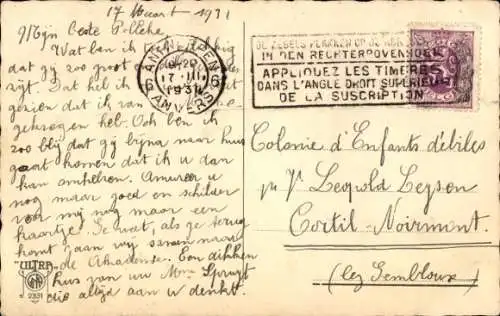 17 Maart 1931
Mijn beste Polleke,
Wat ben ik blij
dat gij zoo groot
zijt. Dat heb ik
gezien dat ik van u
gekregen heb. Ook ben ik
zoo blij dat gij bijna naar huis
gaat komen dat ik u dan
kan omhelzen. Amuseer u
nog maar goed en schilder
voor mij nog maar een
kaartje. Je weet, als ge terug
komt gaan wij samen naar
de Akademie. Een dikken
kus van uw Mme Spruyt
die altijd aan u denkt.
ANTWERPEN
6 6
17 III
1931
ANVERS
DE ZEGELS PLAKKEN OP DE
IN DEN RECHTERBOVENHOEK
APPLIQUEZ LES TIMBRES
DANS L'ANGLE DROIT SUPERIEUR
DE LA SUSCRIPTION
Colonie d'Enfants débiles
Leopold Leyson
Cortil-Noirmont.
(lez Gembloux)
"ULTRA"
2331